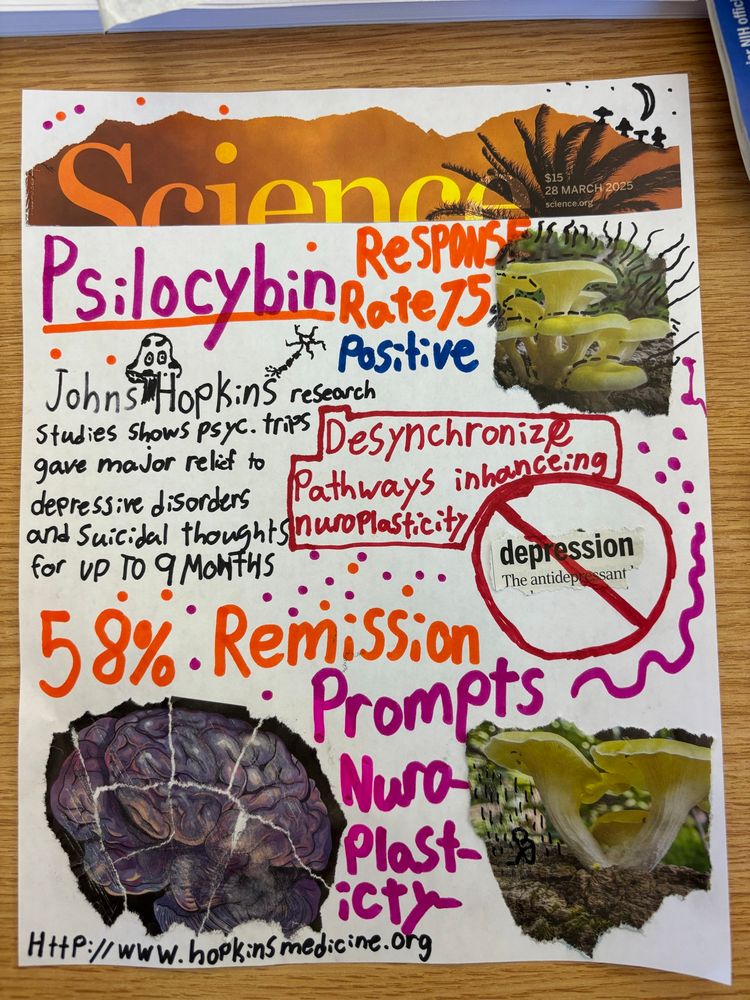 Science
$15
28 MARCH 2025
science.org
Psilocybin
Response
Rate 75
Positive
Johns Hopkins research
Studies shows psyc. trips
gave major relief to
depressive disorders
and Suicidal thoughts
for UP TO 9 MONTHS
Desynchronize
Pathways inhanceing
nuroplasticity
depression
The antidepressant
58% Remission
Prompts
Nuro-
Plast-
icty
Http://www.hopkinsmedicine.org